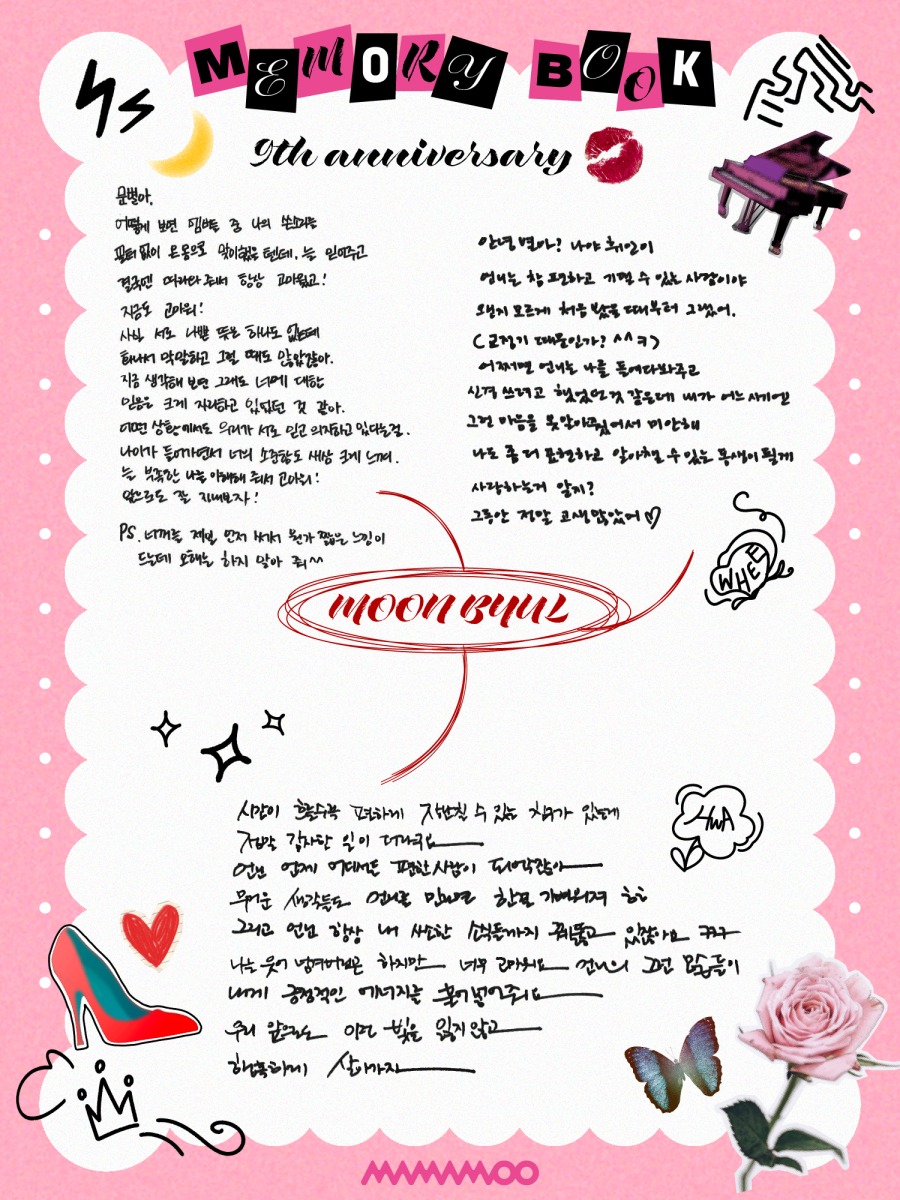 MEMORY BOOK
9th anniversary
문별아,
어떻게 보면 멤버들 중 나의 쓴소리를
필터 없이 온몸으로 맞이했을 텐데, 늘 믿어주고
결국엔 따라와 줘서 항상 고마웠고!
지금도 고마워!
사실 서로 나쁜 뜻은 하나도 없는데
화나서 막말하고 그럴 때도 많았잖아.
지금 생각해 보면 그래도 너에 대한
믿음을 크게 자리하고 있었던 것 같아.
어떤 상황에서도 우리가 서로 믿고 의지하고 있다는걸.
나이가 들어가면서 너의 소중함도 세삼 크게 느껴.
늘 부족한 나를 이해해 줘서 고마워!
앞으로도 잘 지내보자!
PS. 너꺼를 제일 먼저 써서 뭔가 짧은 느낌이
드는데 오해는 하지 말아 줘^^
안녕 별아? 나야 휘인이
언니는 참 편하고 기댈 수 있는 사람이야
왠지 모르게 처음 봤을 때부터 그랬어.
(교정기 때문인가? ^^ㅋ)
어쩌면 언니는 나를 들여다봐주고
신경 쓰려고 했었던것 같은데 내가 어느 사이엔
그런 마음을 못알아줬어서 미안해
나도 좀 더 표현하고 알아챌 수 있는 동생이 될게
사랑하는거 알지?
그동안 정말 고생 많았어♡
WHEE
MOON BYUL
시간이 흐를수록 편하게 장난칠 수 있는 친구가 있는게
정말 감사한 일이 더라구요
언닌 언제 어디서든 편한사람이 되어줬잖아
무거운 생각들도 언니를 만나면 한결 가벼워져 ㅎㅎ
그리고 언닌 항상 내 사소한 소식들까지 꿰뚫고 있잖아요 ㅋㅋㅋ
나는 웃어 넘겨버리곤 하지만 너무 고마워요 언니의 그런 모습들이
내게 긍정적인 에너지를 불어넣어주네요
우리 앞으로도 이런 빛을 잃지 않고
행복하게 살아가자
HWA
MAMAMOO